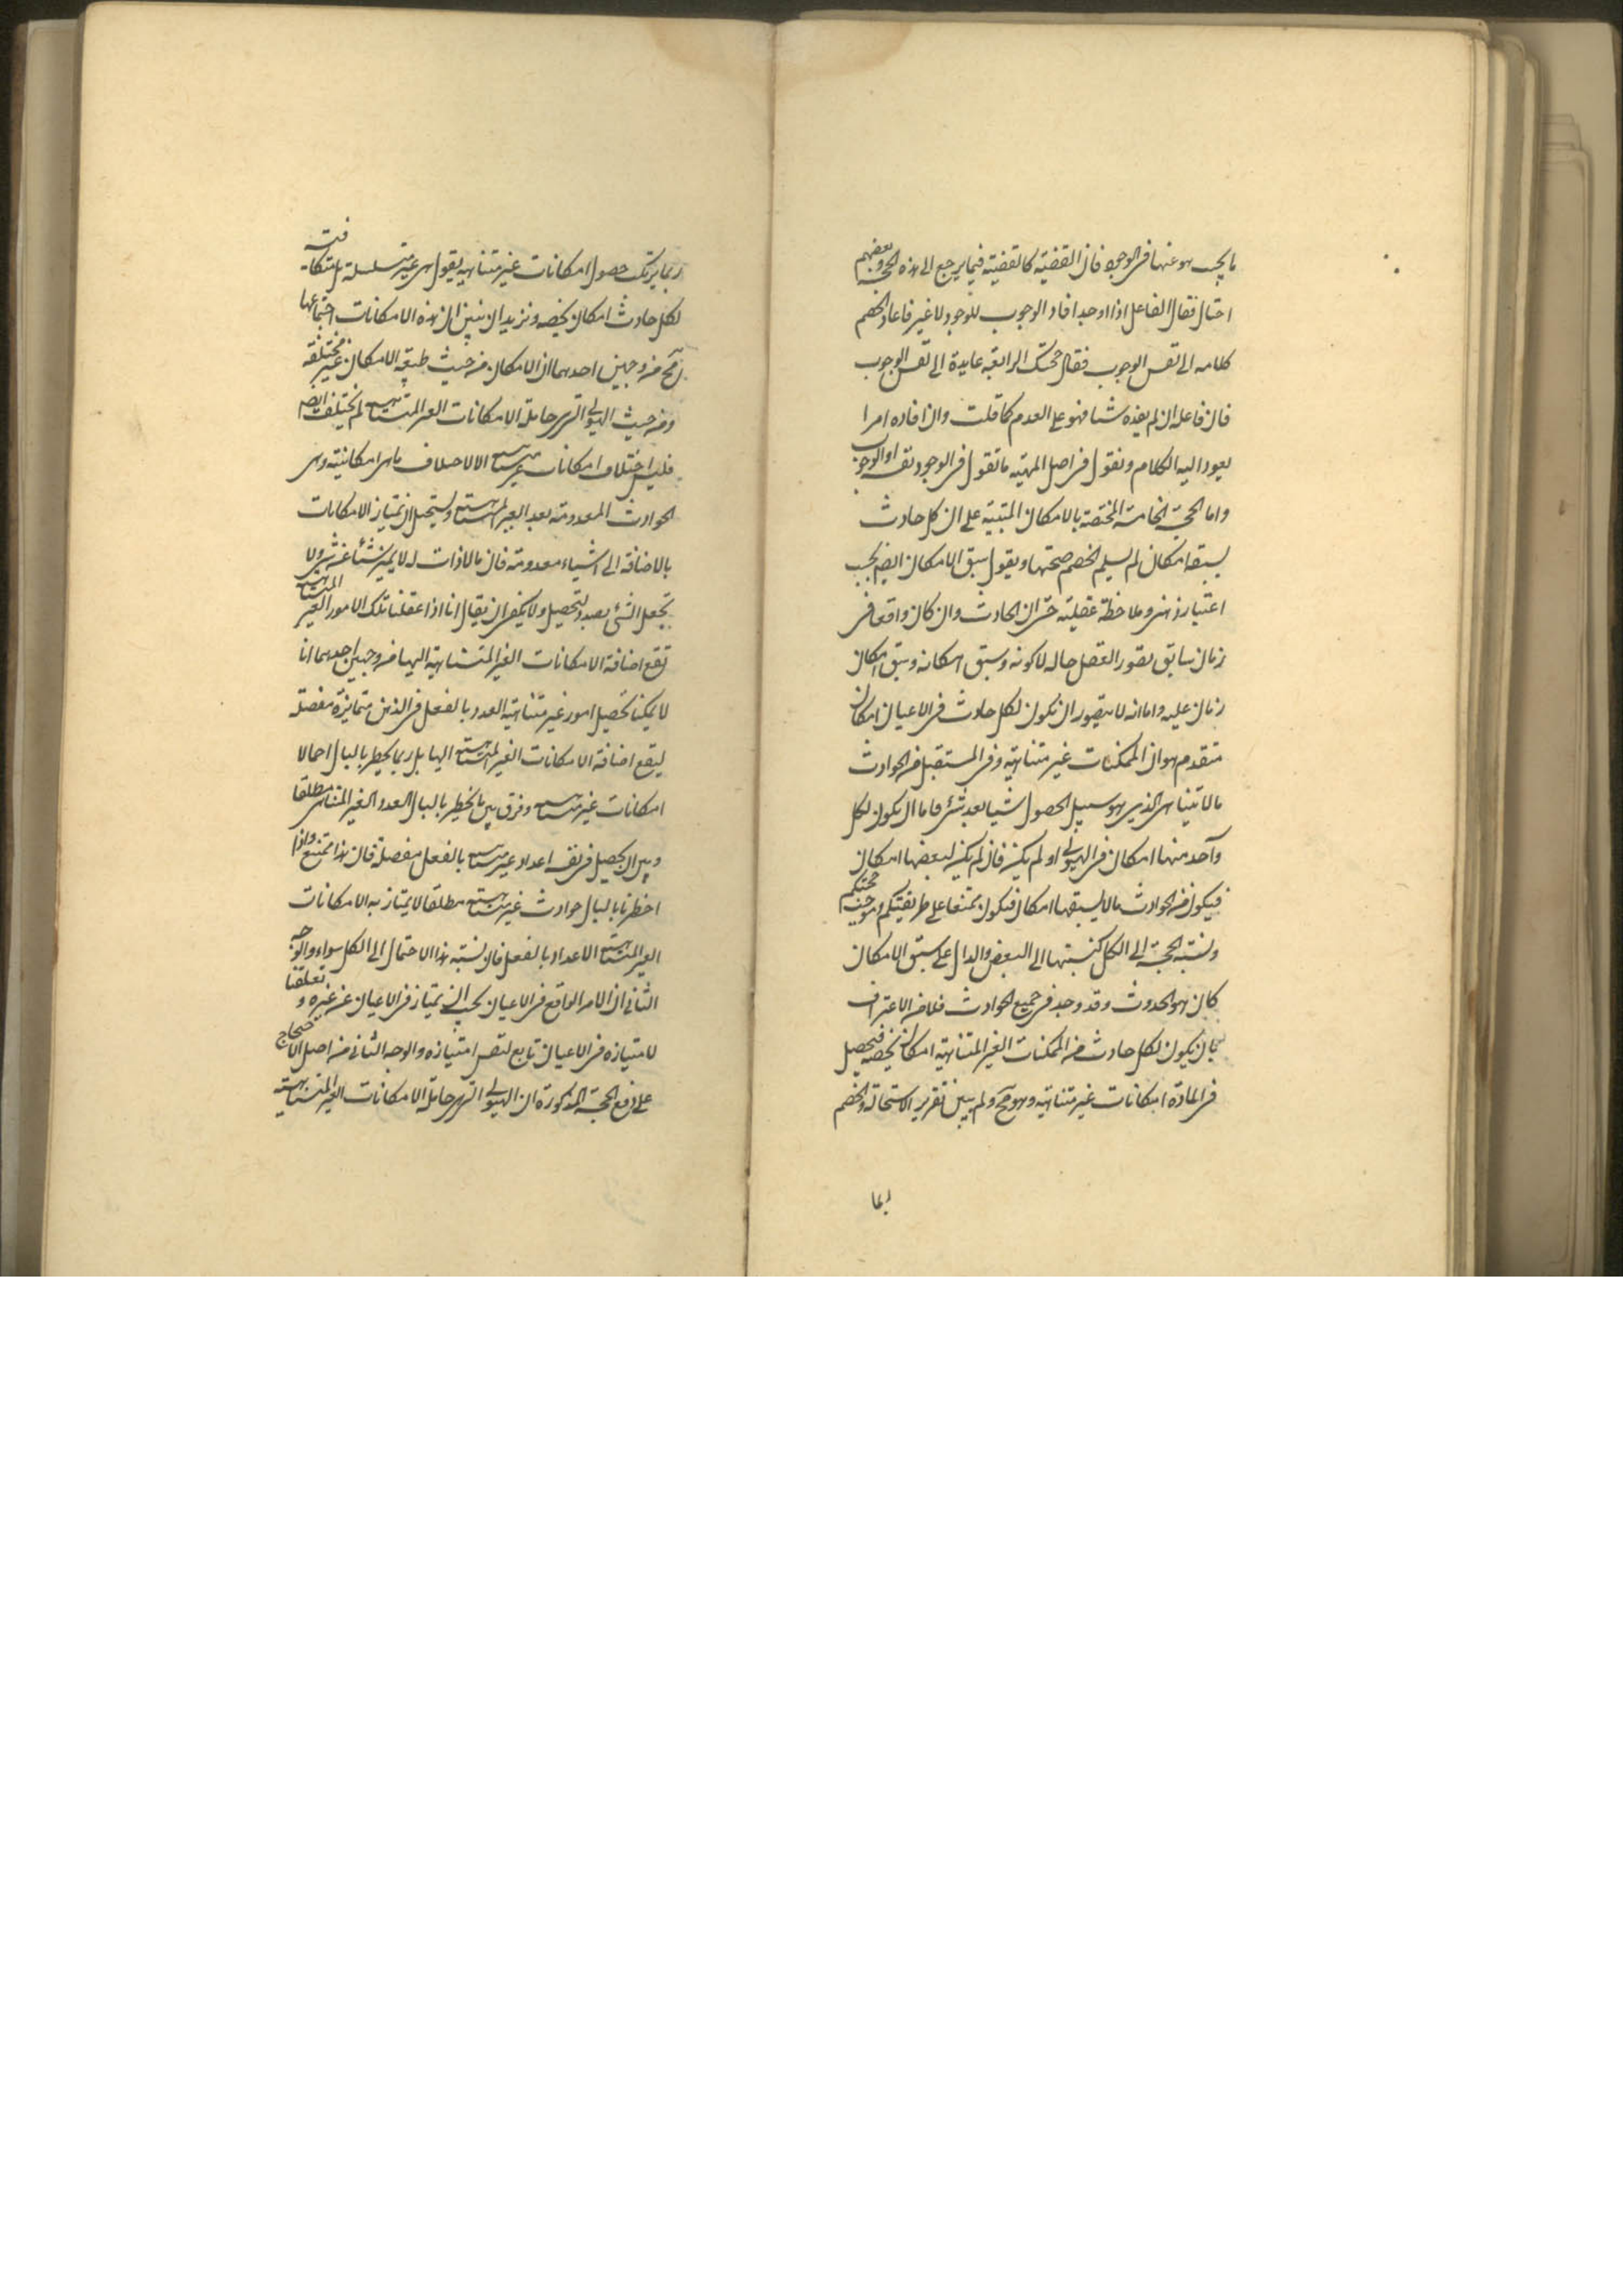 ما يجب هو عنها فى الوجود فان القضية كالقضية فيما يرجع الى هذه الحجة وبعضهم
احتال فقال الفاعل اذا اوجد افاد الوجوب للوجود لا غير فاعاد الخصم
كلامه الى نفس الوجوب فقال حجتك الرابعة عايدة الى نفس الوجوب
فان فاعله ان لم يفده شيئا فهو على العدم كما قلت وان افاده امرا
يعود اليه الكلام ونقول فى اصل المهية ما تقول فى الوجود نفسه او الوجوب
واما الحجة الخامسة المختصة بالامكان المبتنية على ان كل حادث
يسبقه امكان لم يسلم الخصم صحتها ويقول سبق الامكان ايضا بحسب
اعتبار ذهنى وملاحظة عقلية حتى ان الحادث وان كان واقعا فى
زمان سابق يتصور العقل حاله لا كونه وسبق امكانه وسبق امكان
زمان عليه واما انه لا يتصور ان يكون لكل حادث فى الاعيان امكان
متقدم هو ان الممكنات غير متناهية وفى المستقبل من الحوادث
ما لا يتناهى الذى هو سبيل الحصول شيئا بعد شئ فاما ان يكون لكل
واحد منها امكان فى الهيولى او لم يكن فان لم يكن لبعضها امكان
فيكون من الحوادث ما لا يسبقها امكان فيكون ممتنعا على طريقتكم وموجب حجتكم
ونسبة الحجة الى الكل كنسبتها الى البعض والدال على سبق الامكان
كان هو الحدوث وقد وجد فى جميع الحوادث فلا من الاعتراف
بان يكون لكل حادث من الممكنات الغير المتناهية امكان يخصه فيحصل
فى المادة امكانات غير متناهية وهو مح ولم يبين تقرير الاستحالة والخصم
ربما يرتكب حصول امكانات غير متناهية يقول هى غير متسلسلة بل متكافئة
لكل حادث امكان يخصه ونريد ان نبين ان هذه الامكانات اجتماعها
مح من وجهين احدهما ان الامكان من حيث طبيعة الامكان غير مختلفة
ومن حيث الهيولى التى هى حاملة الامكانات الغير المتناهية لم يختلف ايضا
فليس اختلاف امكانات غير متناهية الا لاختلاف ما هى امكانيته وهى
الحوادث المعدومة بعد الغير المتناهية ويستحيل ان يمتاز الامكانات
بالاضافة الى اشياء معدومة فان ما لا ذات له لا يميز شيئا عن شئ ولا
يجعل الشئ بصدد التحصيل ولا يكفى ان يقال انا اذا عقلنا تلك الامور الغير المتناهية
تقع اضافة الامكانات الغير المتناهية اليها من وجهين احدهما انا
لا يمكننا تحصيل امور غير متناهية العدد بالفعل فى الذهن متمايزة مفصلة
ليقع اضافة الامكانات الغير المتناهية اليها بل ربما يخطر بالبال اجمالا
امكانات غير متناهية وفرق بين ما يخطر بالبال العدد الغير المتناهى مطلقا
وبين ان يحصل فى نفسه اعداد غير متناهية بالفعل مفصلة فان هذا ممتنع واذا
اخطرنا بالبال حوادث غير متناهية مطلقا لا يمتاز به الامكانات
الغير المتناهية الاعداد بالفعل فان نسبة هذا الاحتمال الى الكل سواء والوجه
الثانى ان الامر الواقع فى الاعيان يجب ان يمتاز فى الاعيان عن غيره وتعلقنا
لامتيازه فى الاعيان تابع لنفس امتيازه والوجه الثانى من اصل الاحتجاج
على دفع الحجة المذكورة ان الهيولى التى هى حاملة الامكانات الغير المتناهية